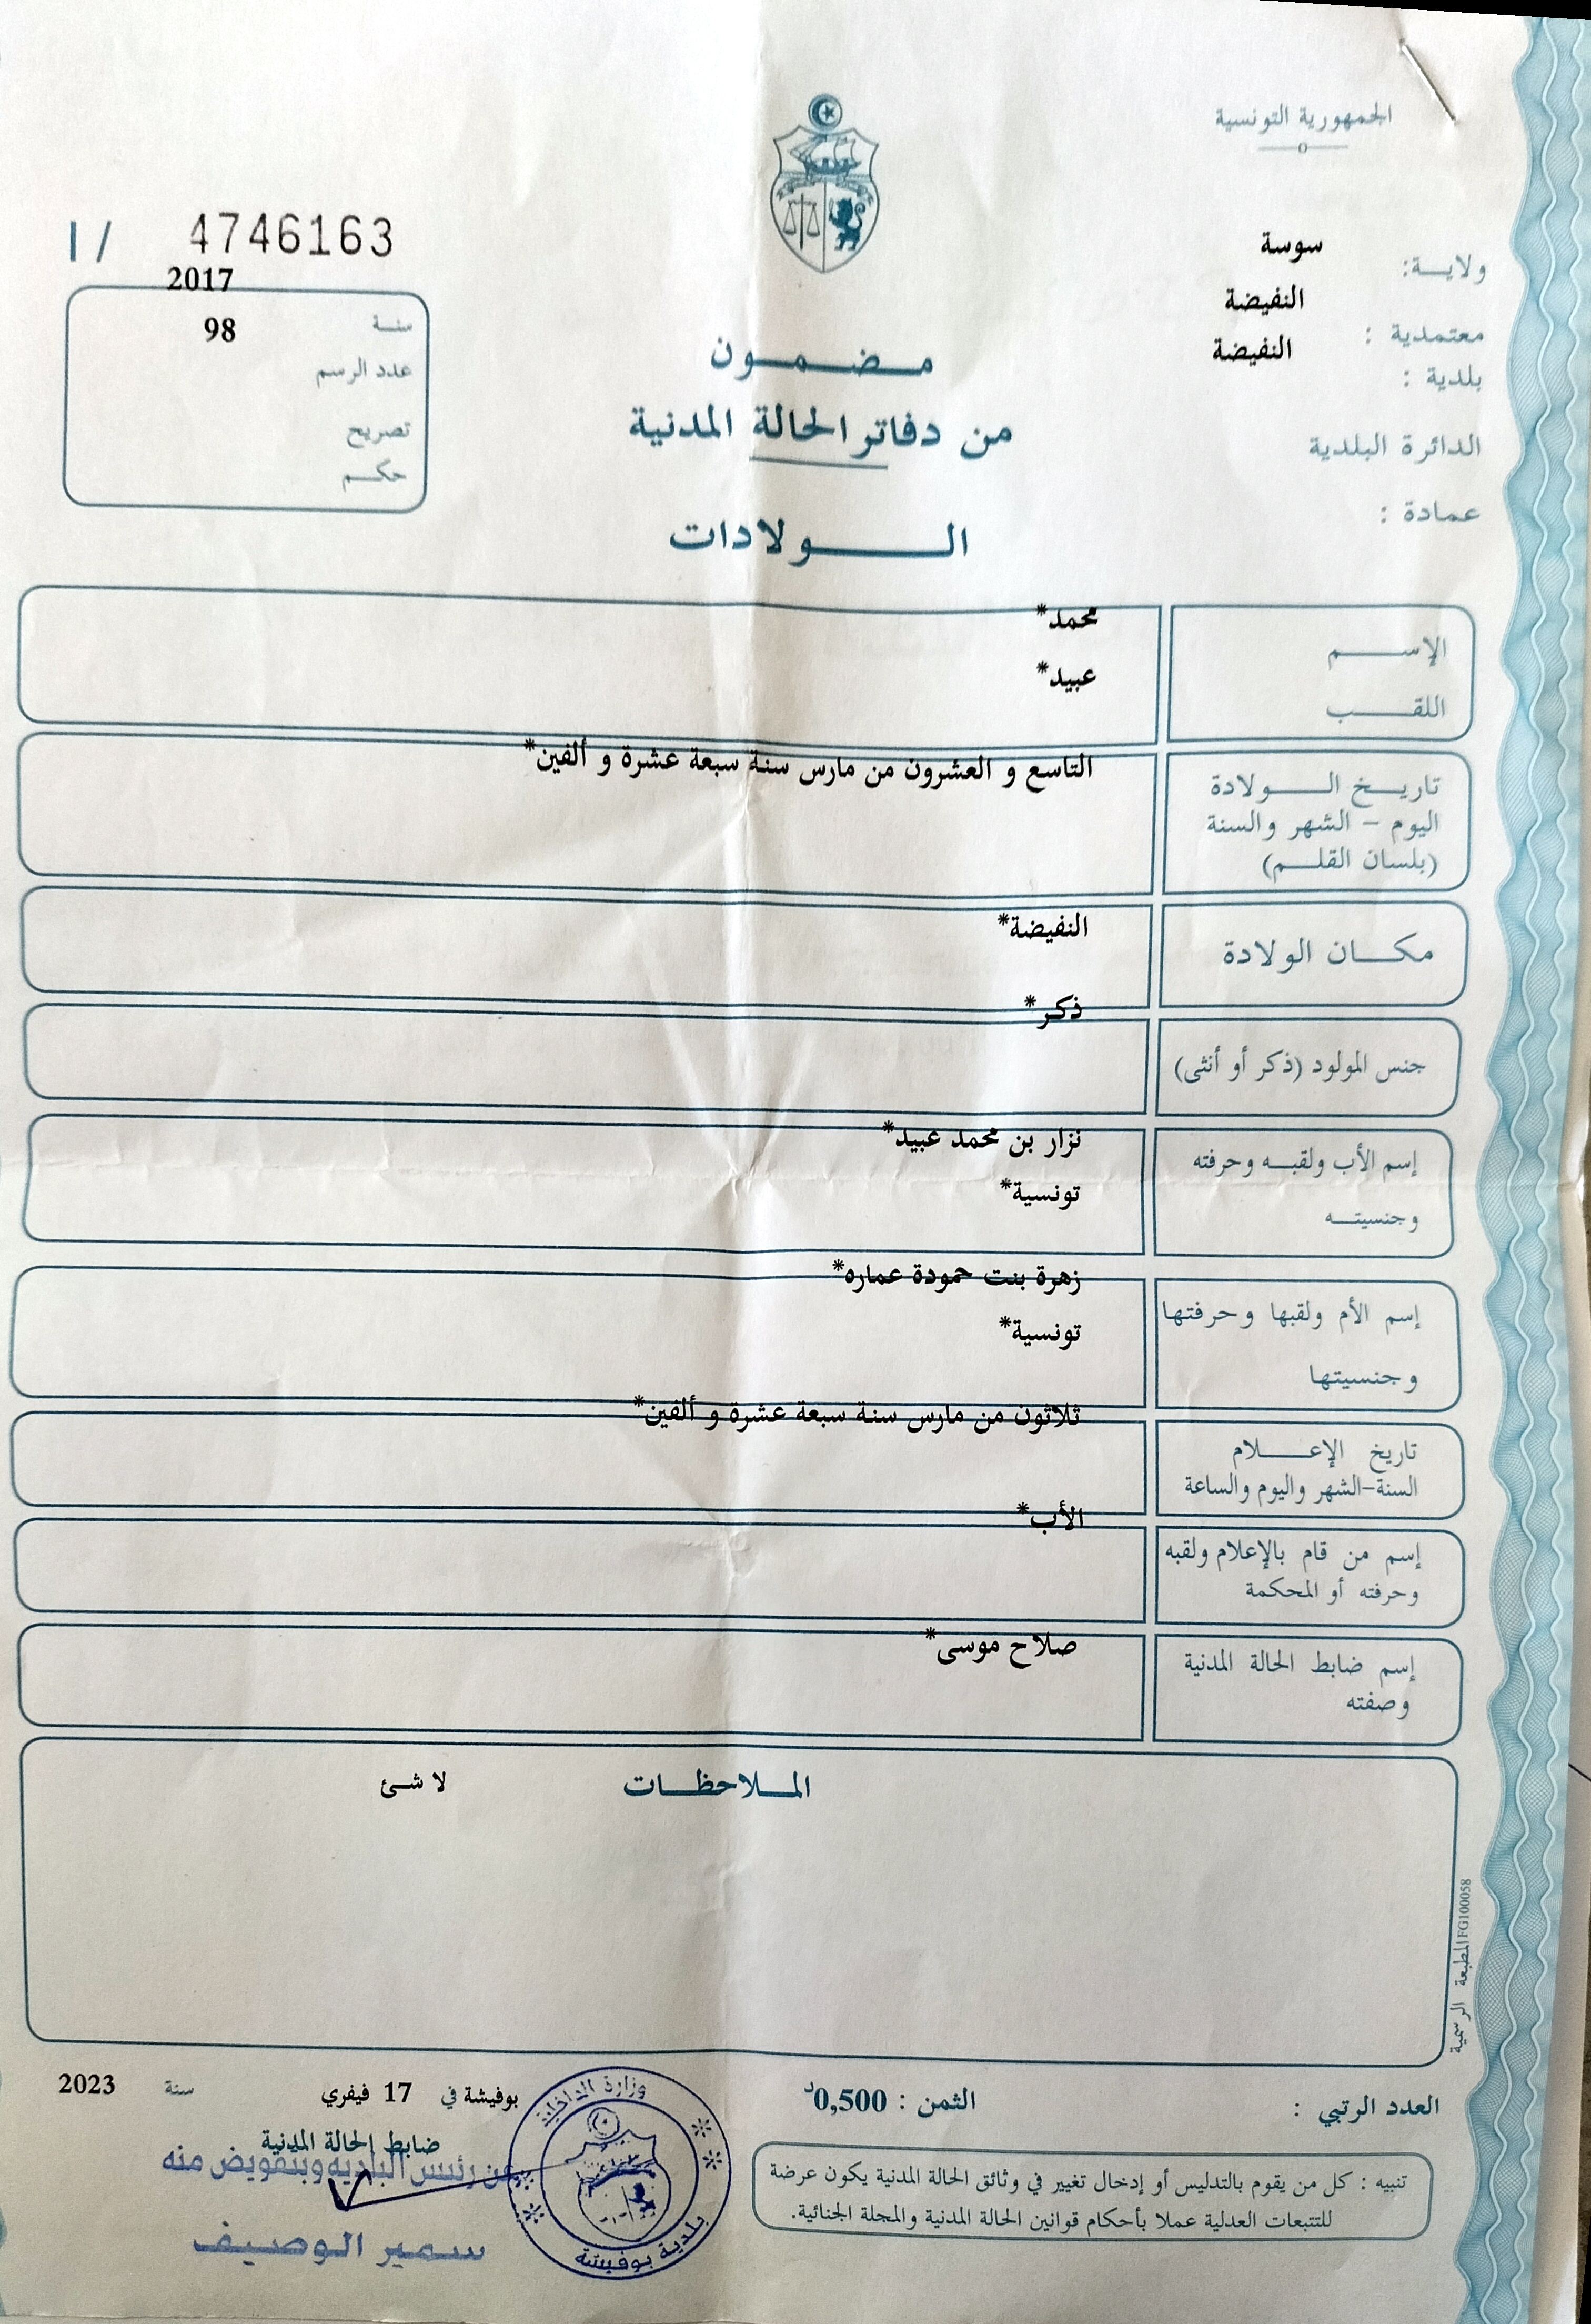 الجمهورية التونسية
ولايـــة: سوسة
معتمدية : النفيضة
بلدية : النفيضة
الدائرة البلدية
عمادة :
I / 4746163
سنـة 2017
عدد الرسم 98
تصريح
حكـم
مـــضـــمـــون
من دفاتر الحالة المدنية
الـــــولادات
الإســــم محمد*
اللقــــب عبيد*
تاريــخ الــــولادة التاسع و العشرون من مارس سنة سبعة عشرة و ألفين*
اليوم - الشهر والسنة
(بلسان القلـــم)
مكـــان الولادة النفيضة*
جنس المولود (ذكر أو أنثى) ذكر*
إسم الأب ولقبــه وحرفته نزار بن محمد عبيد*
وجنسيتــه تونسية*
إسم الأم ولقبها وحرفتها زهرة بنت حمودة عماره*
وجنسيتها تونسية*
تاريخ الإعــــلام ثلاثون من مارس سنة سبعة عشرة و ألفين*
السنة-الشهر واليوم والساعة
إسم من قام بالإعلام ولقبه الأب*
وحرفته أو المحكمة
إسم ضابط الحالة المدنية صلاح موسى*
وصفته
المــلاحظــات لا شئ
المطبعة الرسمية FG100058
العدد الرتبي :
الثمن : 0,500د
بوفيشة في 17 فيفري سنة 2023
ضابط الحالة المدنية
عن رئيس البلدية وبتفويض منه
سمير الوصيف
وزارة الداخلية
بلدية بوفيشة
تنبيه : كل من يقوم بالتدليس أو إدخال تغيير في وثائق الحالة المدنية يكون عرضة
للتتبعات العدلية عملا بأحكام قوانين الحالة المدنية والمجلة الجنائية.